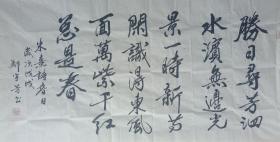 勝日尋芳泗
水濱無邊光
景一時新等
閑識得東風
面萬紫千紅
總是春
朱熹詩春日
歲次戊戌